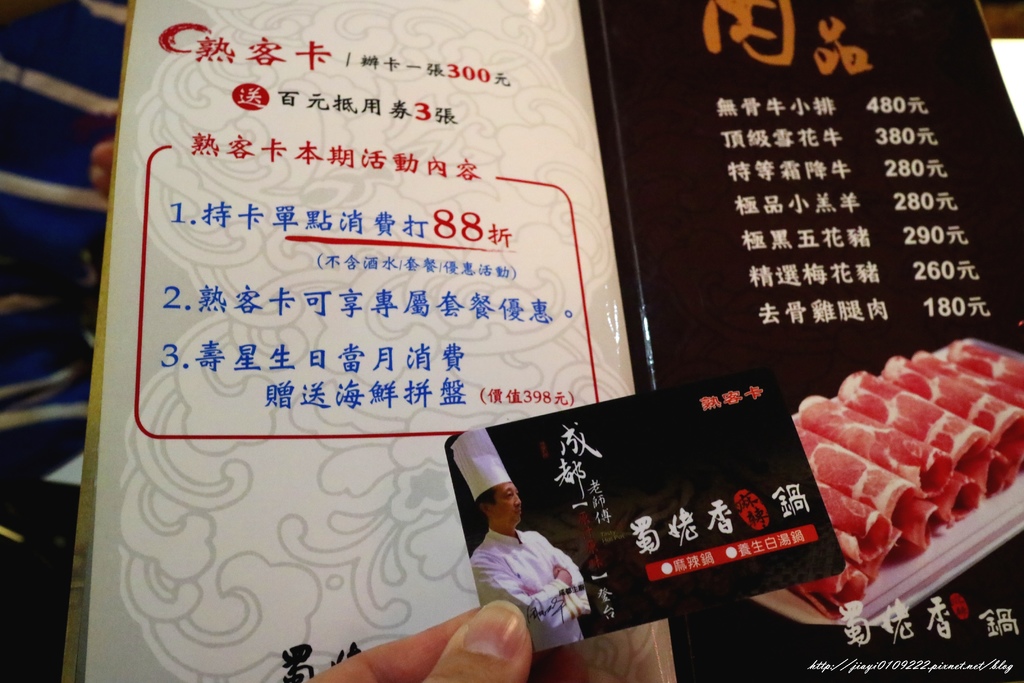 熟客卡 / 辦卡一張300元
送 百元抵用券3張
熟客卡本期活動內容
1.持卡單點消費打88折
(不含酒水/套餐/優惠活動)
2.熟客卡可享專屬套餐優惠。
3.壽星生日當月消費
贈送海鮮拼盤 (價值398元)
蜀姥
肉品
無骨牛小排 480元
頂級雪花牛 380元
特等霜降牛 280元
極品小羔羊 280元
極黑五花豬 290元
精選梅花豬 260元
去骨雞腿肉 180元
蜀姥香麻辣鍋
熟客卡
成都
老師傅
登台
蜀姥香麻辣鍋
●麻辣鍋 ●養生白湯鍋
http://jiayi0109222.pixnet.net/blog